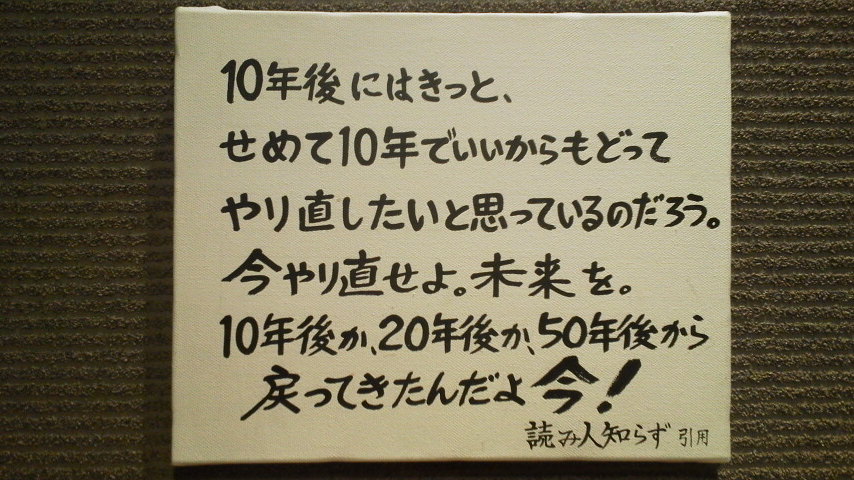 10年後にはきっと、
せめて10年でいいからもどって
やり直したいと思っているのだろう。
今やり直せよ。未来を。
10年後か、20年後か、50年後から
戻ってきたんだよ今!
読み人知らず 引用